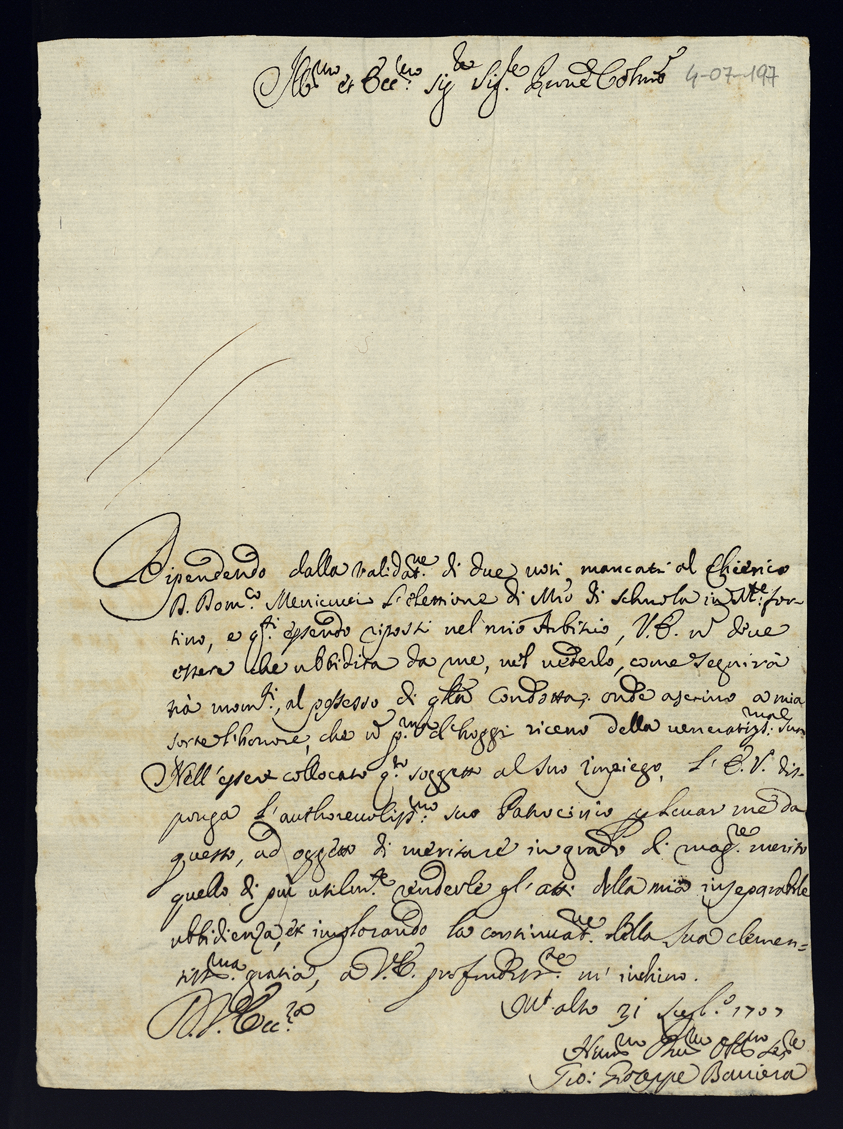 Ill.mo et Ecc.mo Sig.re Sig.re Prone Colmo 4-07-197
Dipendendo dalla validat.ne di due voti mancati al Chierico
D. Dom.co Menicucci l'elettione di Mro di schuola in M.te for-
tino, e q.ti essendo riposti nel mio Arbitrio, V.E. n' deve
essere che ubbidita da me, nel vederlo, come seguirà
frà mom.ti, al possesso di qlla Condotta; onde ascrivo a mia
sorte l'honore, che n' p.ma d'hoggi ricevo della veneratiss.ma sua.
Nell'essere collocato q.to soggetto al suo impiego, l'E.V. dis-
ponga l'authorevoliss.mo suo Patrocinio p levar me da
questo, ad oggetto di meritare in grado di mag.re merito
quello di più utilm.te renderle gl'atti della mia inseparabile
ubbidienza, et implorando la continuat.ne della sua clemen-
tiss.ma gratia, a V.E. profond.te m'inchino.
D. V. Ecc.za
M.t alto 31 1707
Hum.mo Oblig.mo Ser.re
Gio: Gioseppe Barriera